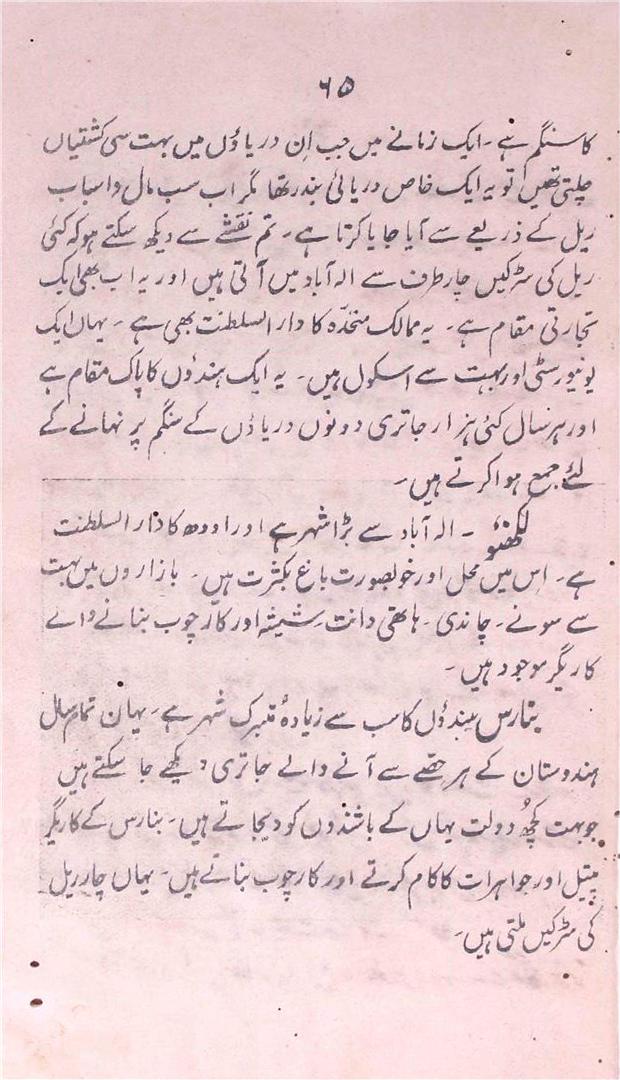 ۶۵
کا سنگم ہے۔ ایک زمانے میں جب اِن دریاؤں میں بہت سی کشتیاں
چلتی تھیں تو یہ ایک خاص دریائی بندر تھا مگر اب سب مال و اسباب
ریل کے ذریعے سے آیا جایا کرتا ہے۔ تم نقشے سے دیکھ سکتے ہو کہ کئی
ریل کی سڑکیں چار طرف سے الہ آباد میں آتی ہیں اور یہ اب بھی ایک
تجارتی مقام ہے۔ یہ ممالک متحدّہ کا دار السلطنت بھی ہے۔ یہاں ایک
یونیورسٹی اور بہت سے اسکول ہیں۔ یہ ایک ہندؤں کا پاک مقام ہے
اور ہر سال کئی ہزار جاتری دونوں دریاؤں کے سنگم پر نہانے کے
لئے جمع ہوا کرتے ہیں۔
لکھنؤ ۔ الہ آباد سے بڑا شہر ہے اور اودھ کا دار السلطنت
ہے۔ اِس میں محل اور خوبصورت باغ بکثرت ہیں۔ بازاروں میں بہت
سے سونے۔ چاندی۔ ہاتھی دانت۔ شیشہ اور کارچوب بنانے والے
کاریگر موجود ہیں۔
بنارس ہندؤں کا سب سے زیادہ متبرک شہر ہے۔ یہان تمام سال
ہندوستان کے ہر حصّے سے آنے والے جاتری دیکھے جا سکتے ہیں
جو بہت کچھ دولت یہاں کے باشندوں کو دیجاتے ہیں۔ بنارس کے کاریگر
پیتل اور جواہرات کا کام کرتے اور کارچوب بناتے ہیں۔ یہاں چار ریل
کی سڑکیں ملتی ہیں۔